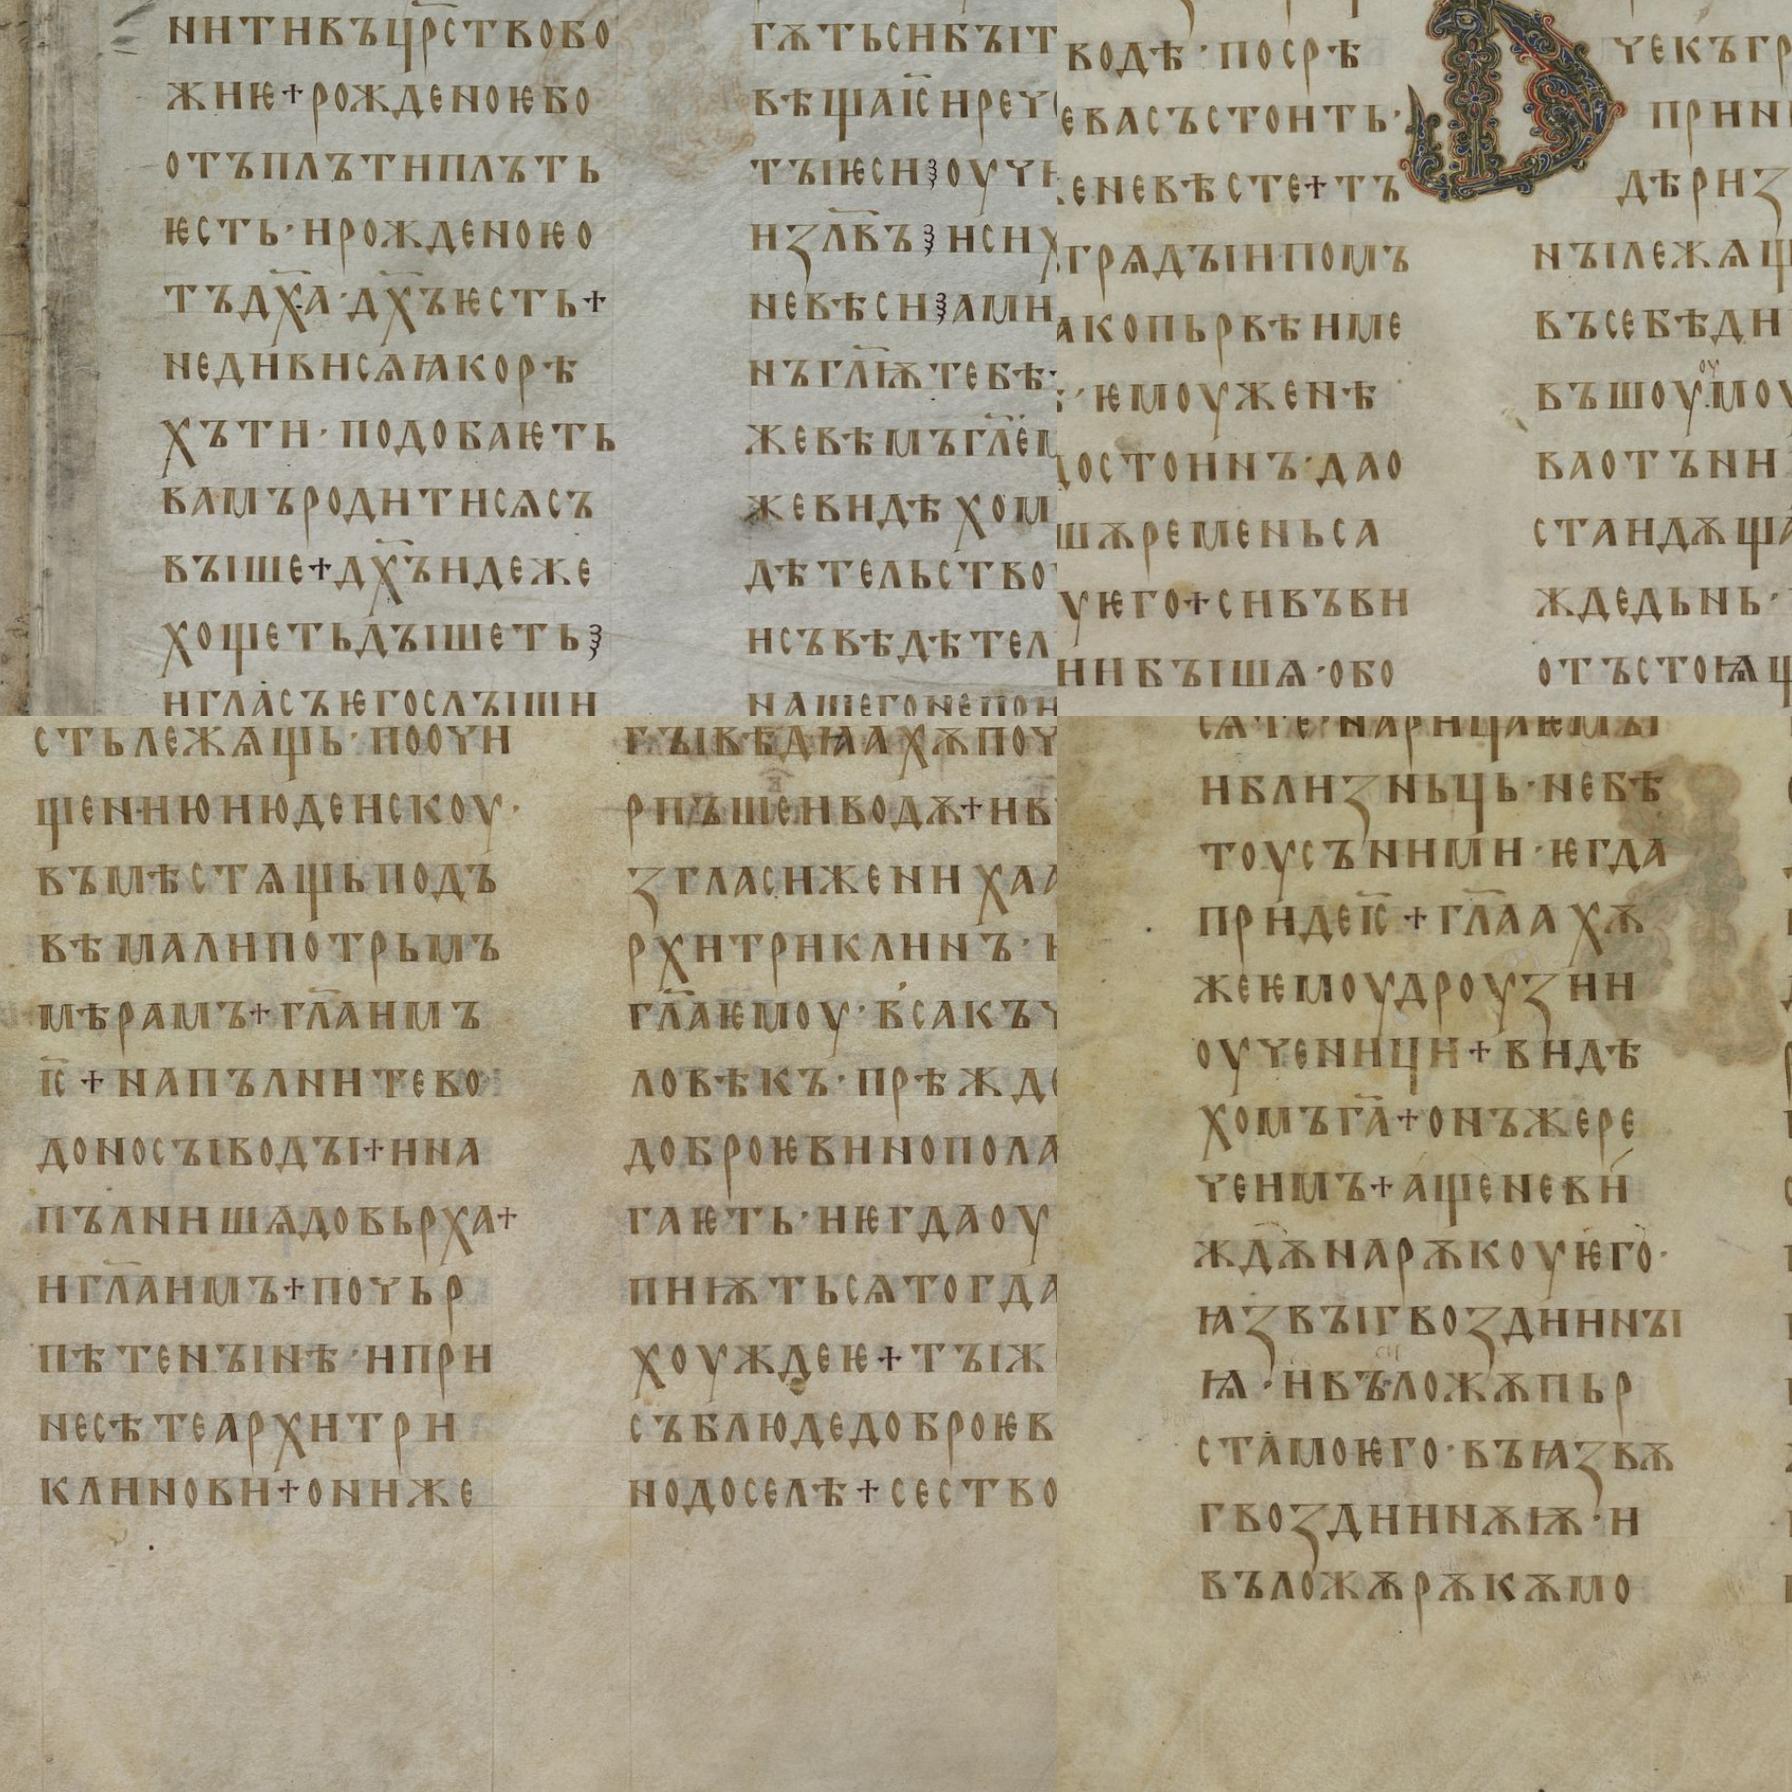 нитивъцр҃ствобо
жиѥ+рожденоѥбо
отъплътиплъть
ѥсть·ирожденоѥо
тъдх҃а·дх҃ъѥсть+
недивисѧꙗкорѣ
хъти·подобаѥть
вамъродитисѧсъ
въіше+дх҃ъидеже
хощетьдъішеть
игласъѥгослъіши
гѫтьсибъіт
вѣщаіс҃иреч
тъіѥсиоуч
изл҃въиси
невѣсиами
нъгл҃ѭтебѣ
жевѣмъгл҃ем
жевидѣхом
дѣтельство
исъвѣдѣтел
нашегонепои
водѣ·посрѣ
евасъстоить·
женевѣсте+тъ
грѧдъіипомъ
акопьрвѣмне
·ѥмоуженѣ
достоинъ·дао
шѫременьса
уѥго+сивъви
ниибъішѧ·обо
чекъгр
прии
дѣриз
нъілежѧщ
въсебѣди
въшоуоумоу
ваотъни
стаидѫща
ждедьнь·
отъстоѩщ
стьлежѧщь·поочи
щениюиюденскоу·
въмѣстѧщьподъ
вѣмалипотрьмъ
мѣрамъ+гл҃аимъ
іс҃+напълнитево
доносъіводъі+ина
пълнишѧдовьрха+
игл҃аимъ+почьр
пѣтенъінѣ·ипри
несѣтеархитри
клинови+ониже
гъівѣдѣахѫпоч
рпъшеиводѫ+ив
згласиженихаа
рхитриклинъ·и
гл҃аѥмоу·всакъч
ловѣкъ·прѣжде
доброѥвинопола
гаѥть·иѥгдаоу
пиѭтьсѧтогда
хоуждеѥ+тъіж
съблюдедоброѥв
нодоселѣ+сество
сѧте·нарицаѥмъі
иблизньць·небѣ
тоусъними·ѥгда
придеіс҃+гл҃аахѫ
жеѥмоудроузии
оученици+видѣ
хомъга҃+онъжере
чеимъ+ащеневи
ждѫнарѫкоуѥго·
ꙗзвъігвоздиинъі
ѩ·ивъложѫпьр
стамоѥго·въꙗзвѫ
гвоздииинѫѭ·и
въложѫрѫкѫмо